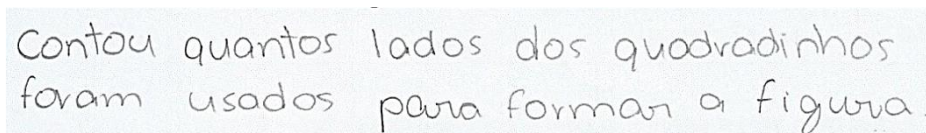 Contou quantos lados dos quadradinhos
foram usados para formar a figura.